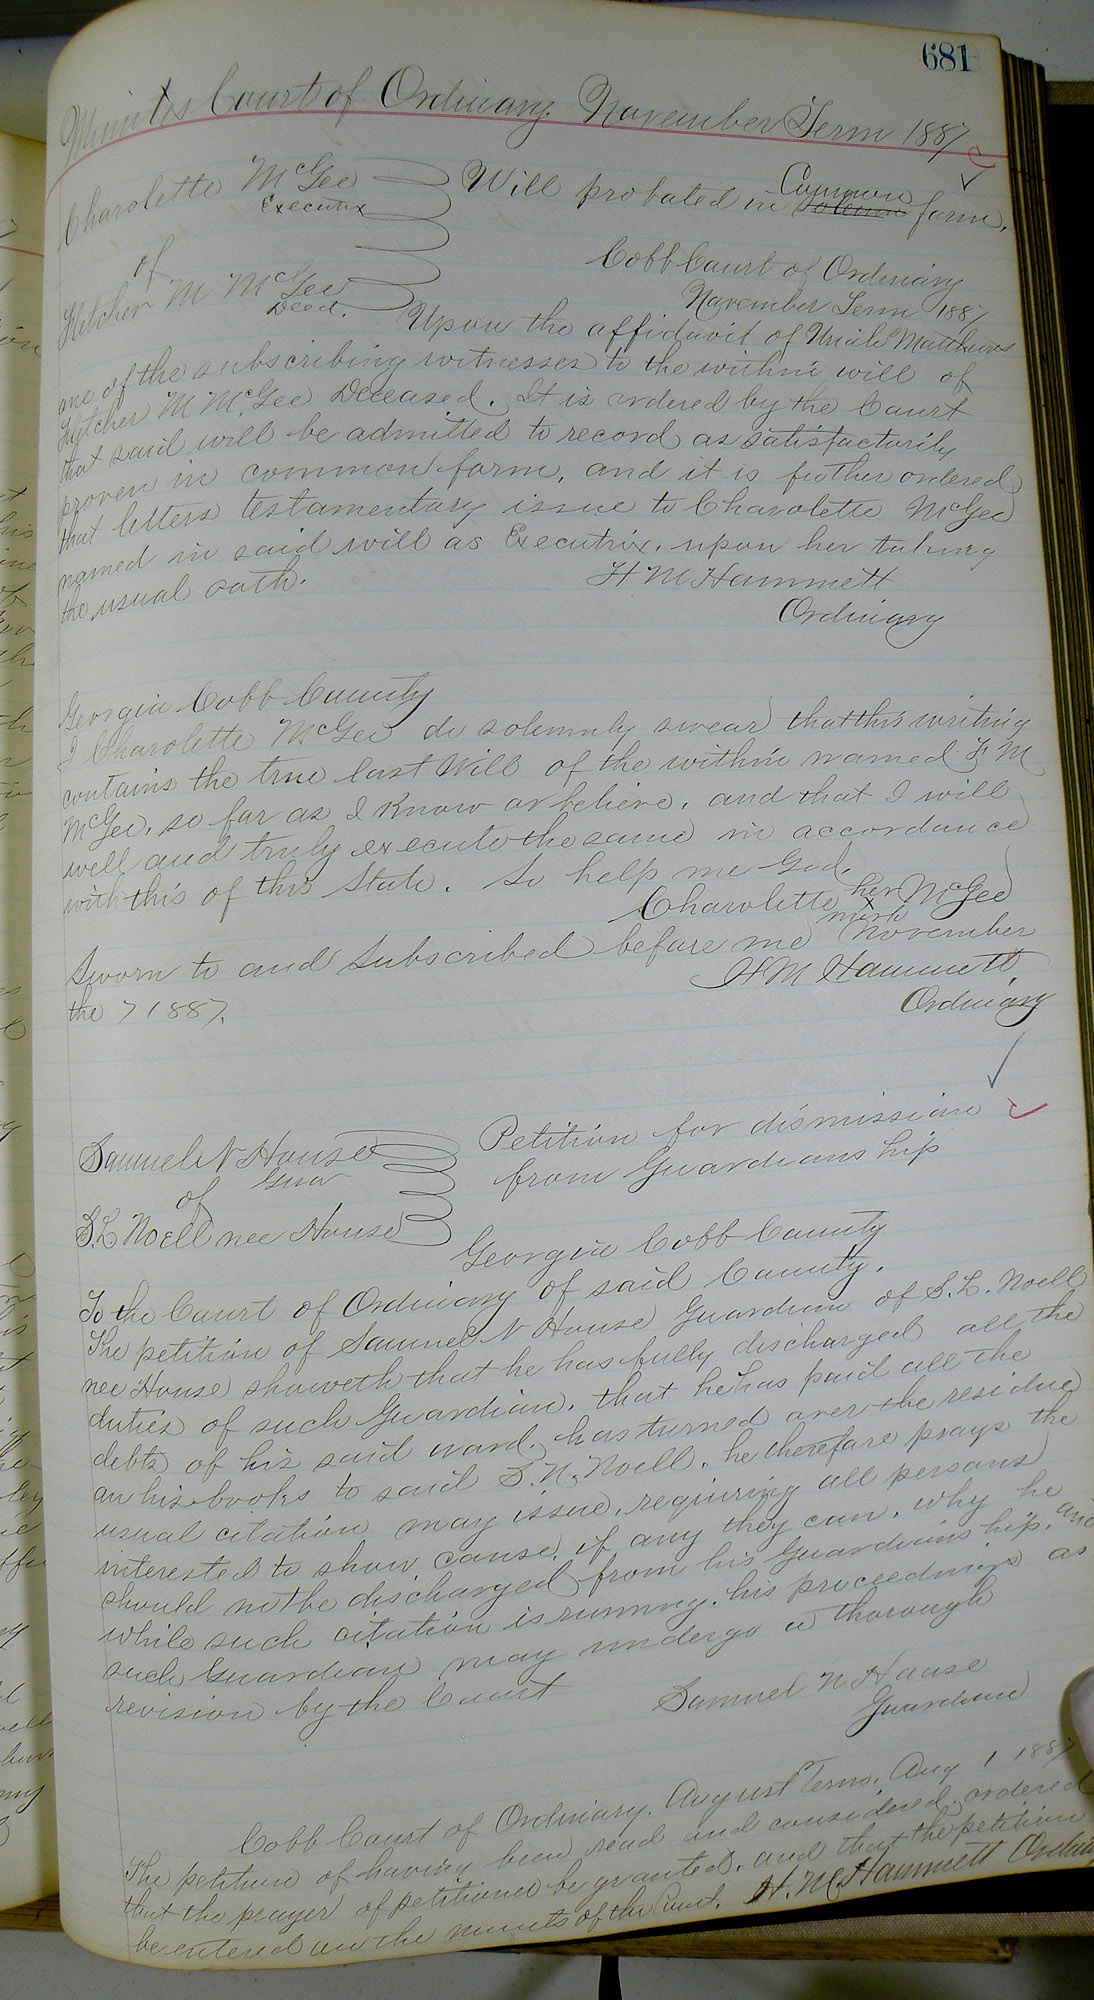 681
Minutes Court of Ordinary November Term 1887
Charolette McGee
Executrix
of
Fletcher M McGee
Deed.
Will probated in Common solemn form.
Cobb Court of Ordinary
November Term 1887
Upon the affidavit of Uriah Matthews
one of the subscribing witnesses to the within will of
Fletcher M McGee Deceased. It is ordered by the Court
that said will be admitted to record as satisfactorily
proven in common form, and it is futher ordered
that letters testamentary issue to Charolette McGee
named in said will as Executrix, upon her taking
the usual oath.
H M Hammett
Ordinary
Georgia Cobb County
I Charolette McGee do solemnly swear that this writing
contains the true last Will of the within named F M
McGee, so far as I know or believe, and that I will
well and truly execute the same in accordance
with this of this State. So help me God.
Charolette her x mark McGee
Sworn to and Subscribed before me November
the 7 1887.
H M Hammett
Ordinary
Samuel N House
Guar
of
S. L Noell nee House
Petition for dismission
from Guardianship
Georgia Cobb County
To the Court of Ordinary of said County.
The petition of Samuel N House Guardian of S. L. Noell
nee House showeth that he has fully discharged all the
duties of such Guardian, that he has paid all the
debts of his said ward, has turned over the residue
on his books to said S. N. Noell, he therefore prays the
usual citation may issue, requiring all persons
interested to show cause, if any they can, why he
should not be discharged from his Guardianship, and
while such citation is running, his proceedings as
such Guardian may undergo a thorough
revision by the Court
Samuel N House
Guardian
Cobb Court of Ordinary, August Term, Aug 1 1887
The petition of having been read and considered, ordered
that the prayer of petitioned be granted, and that the petition
be entered on the minuts of the Court. H. M. Hammett Ordinary